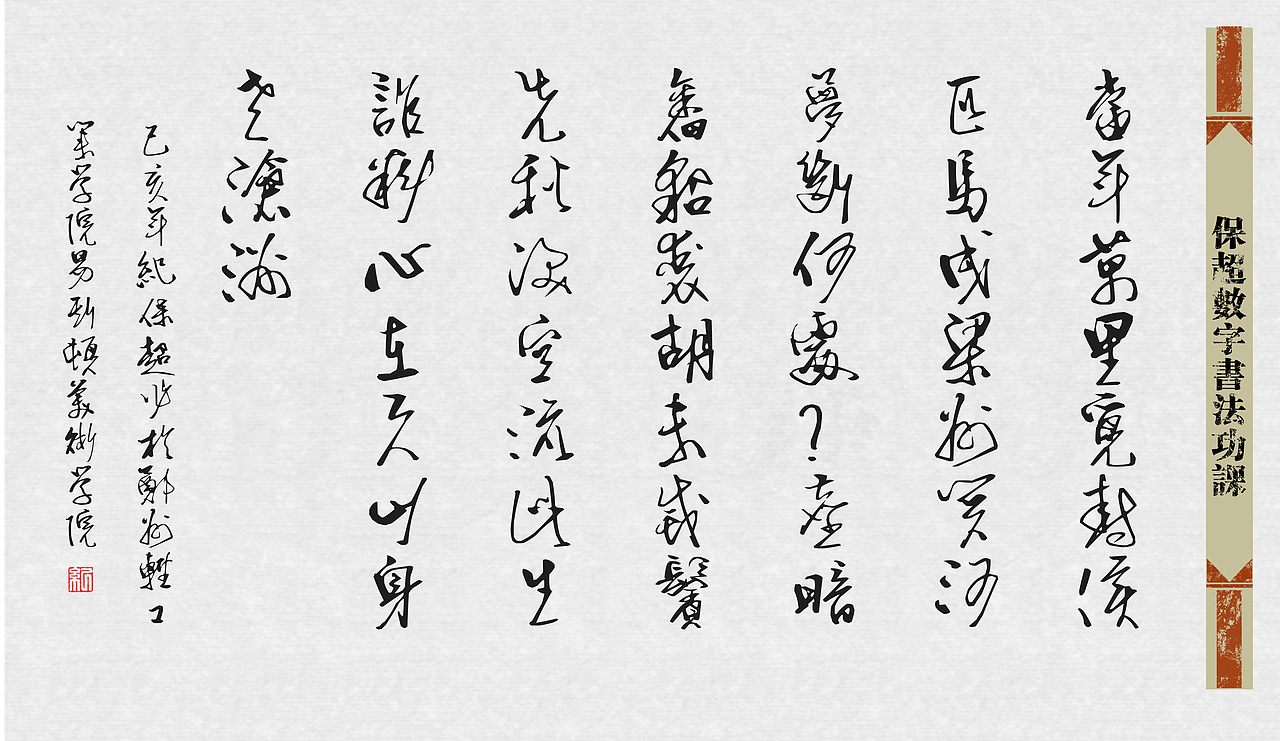 保超數字書法功課
當年萬里覓封侯
匹馬戍梁州関河
夢斷何處？塵暗
舊貂裘胡未滅鬢
先秋淚空流此生
誰料心在天山身
老滄洲
己亥年紀保超書於鄭州輕工
業学院易斯頓美術学院